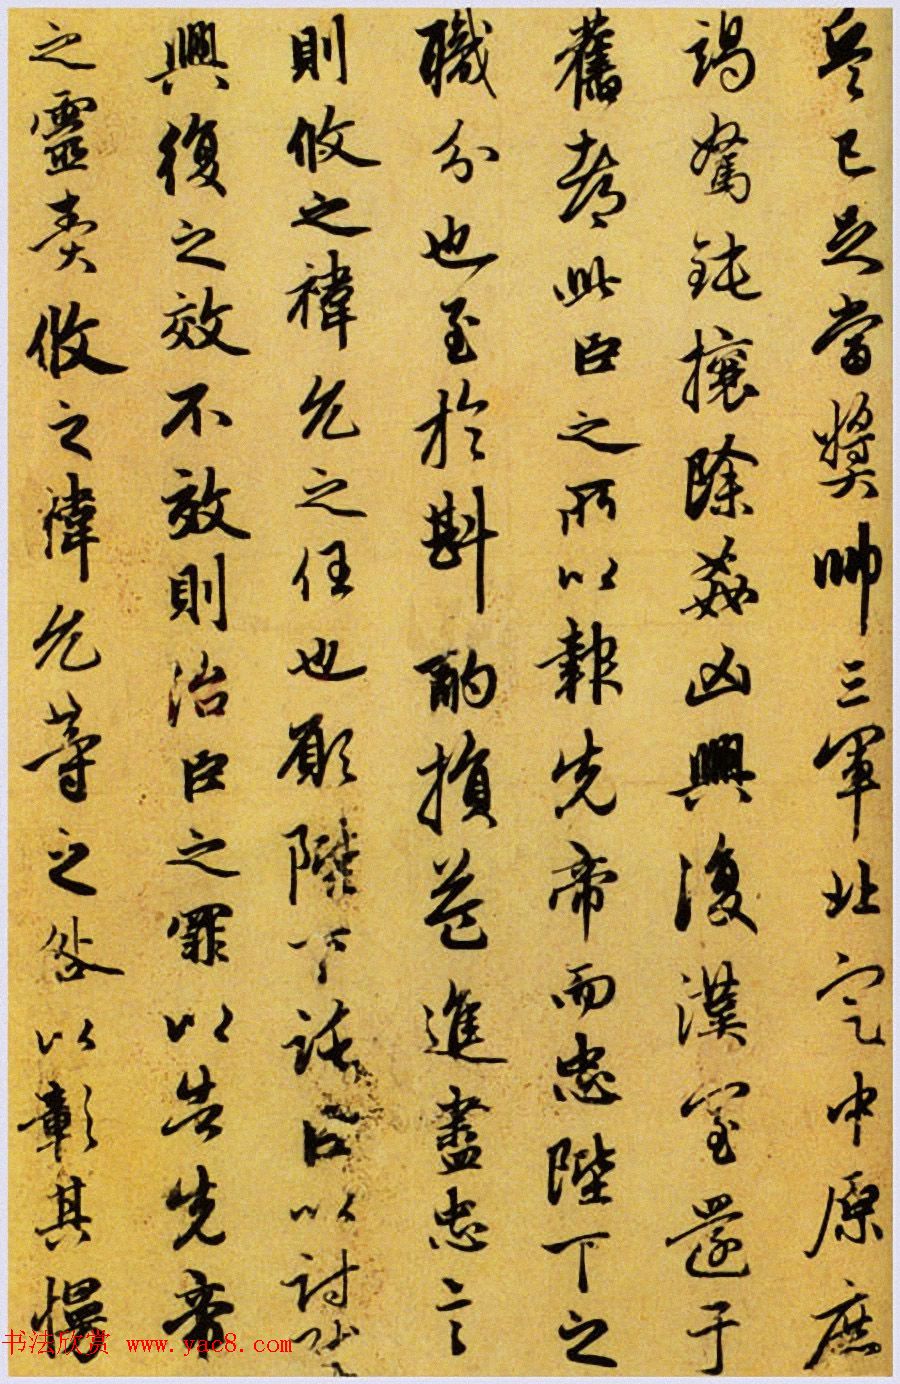 兵已足當獎帥三軍北定中原庶
竭駑鈍攘除姦凶興復漢室還于
舊都此臣之所以報先帝而忠陛下之
職分也至於斟酌損益進盡忠言
則攸之禕允之任也願陛下託臣以討賊
興復之效不效則治臣之罪以告先帝
之靈責攸之禕允等之咎以彰其慢
书法欣赏 www.yac8.com